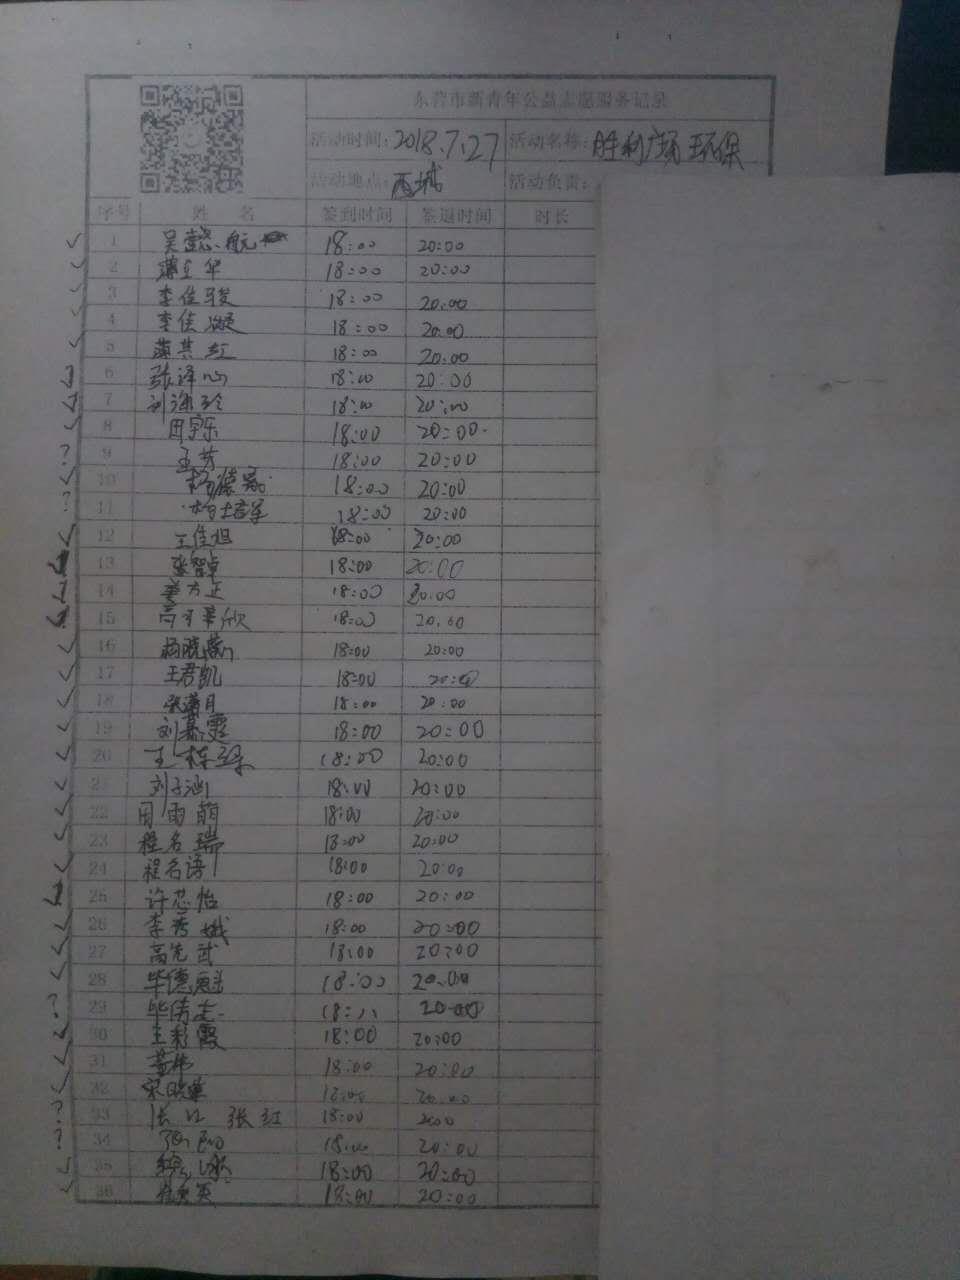 东营市新青年公益志愿服务记录
活动时间: 2018.7.27 活动名称: 胜利广场环保
活动地点: 西城 活动负责:
序号 姓 名 签到时间 签退时间 时长
1 吴懿航 18:00 20:00
2 薄立华 18:00 20:00
3 李佳骏 18:00 20:00
4 李佳凝 18:00 20:00
5 18:00 20:00
6 张译心 18:00 20:00
7 18:00 20:00
8 田宇乐 18:00 20:00
9 王芳 18:00 20:00
10 18:00 20:00
11 18:00 20:00
12 王佳旭 18:00 20:00
13 张智卓 18:00 20:00
14 姜方正 18:00 20:00
15 18:00 20:00
16 杨晓燕 18:00 20:00
17 王君凯 18:00 20:00
18 张潇月 18:00 20:00
19 刘慕霏 18:00 20:00
20 王栋梁 18:00 20:00
21 刘子涵 18:00 20:00
22 周雨萌 18:00 20:00
23 程名瑞 18:00 20:00
24 程名语 18:00 20:00
25 许芯怡 18:00 20:00
26 李秀娥 18:00 20:00
27 高先武 18:00 20:00
28 毕德魁 18:00 20:00
29 20:00
30 王彩霞 18:00 20:00
31 董伟 18:00 20:00
32 18:00 20:00
33 张红 张红 18:00
34 18:00 20:00
35 18:00 20:00
36 18:00 20:00